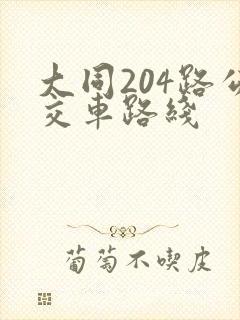 大同204路公
交車路綫
葡萄不喫皮